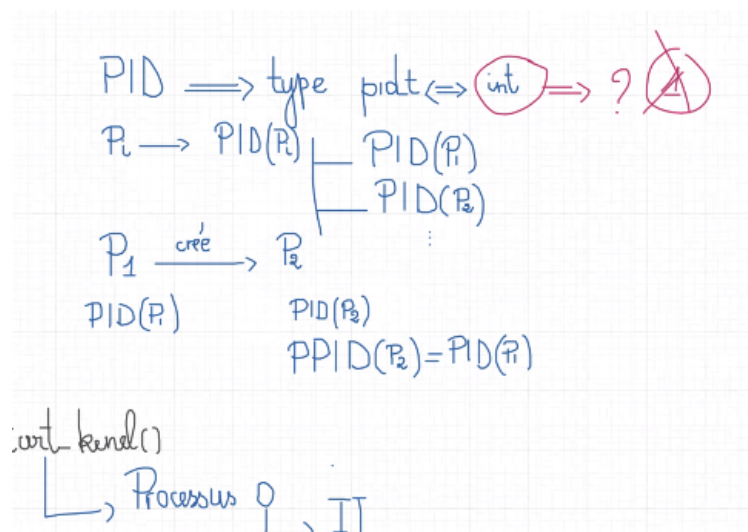 PID ⟹ type pidt ⟺ int ⟹ ? 4
Pi → PID(Pi) PID(P1)
PID(P2)
⋮
P1 crée → P2
PID(P1) PID(P2)
PPID(P2)=PID(P1)
art_kernel()
Processus 0